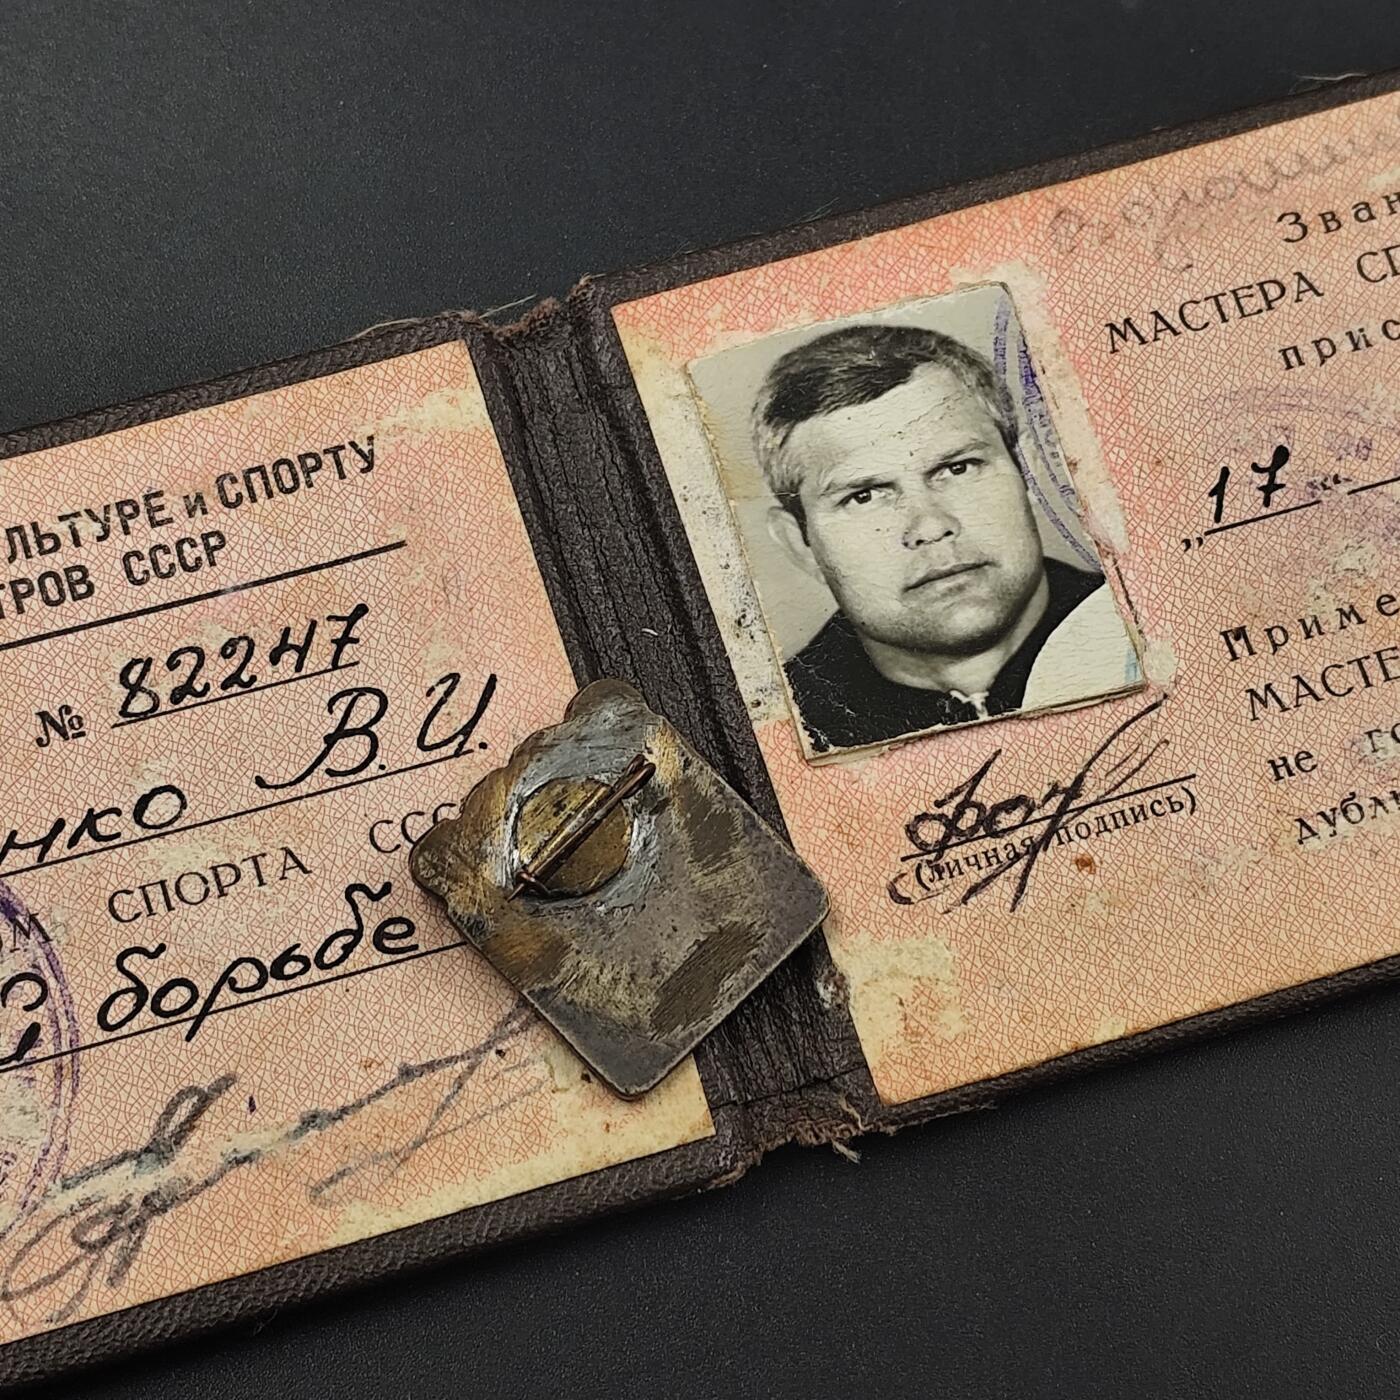 ЛЬТУРЕ и СПОРТУ
ТРОВ СССР
№ 82247
нко В.И.
СПОРТА ССС
борьбе
Зван
МАСТЕРА СП
прис
„17“
(личная подпись)
Приме
МАСТЕ
не го
дубли